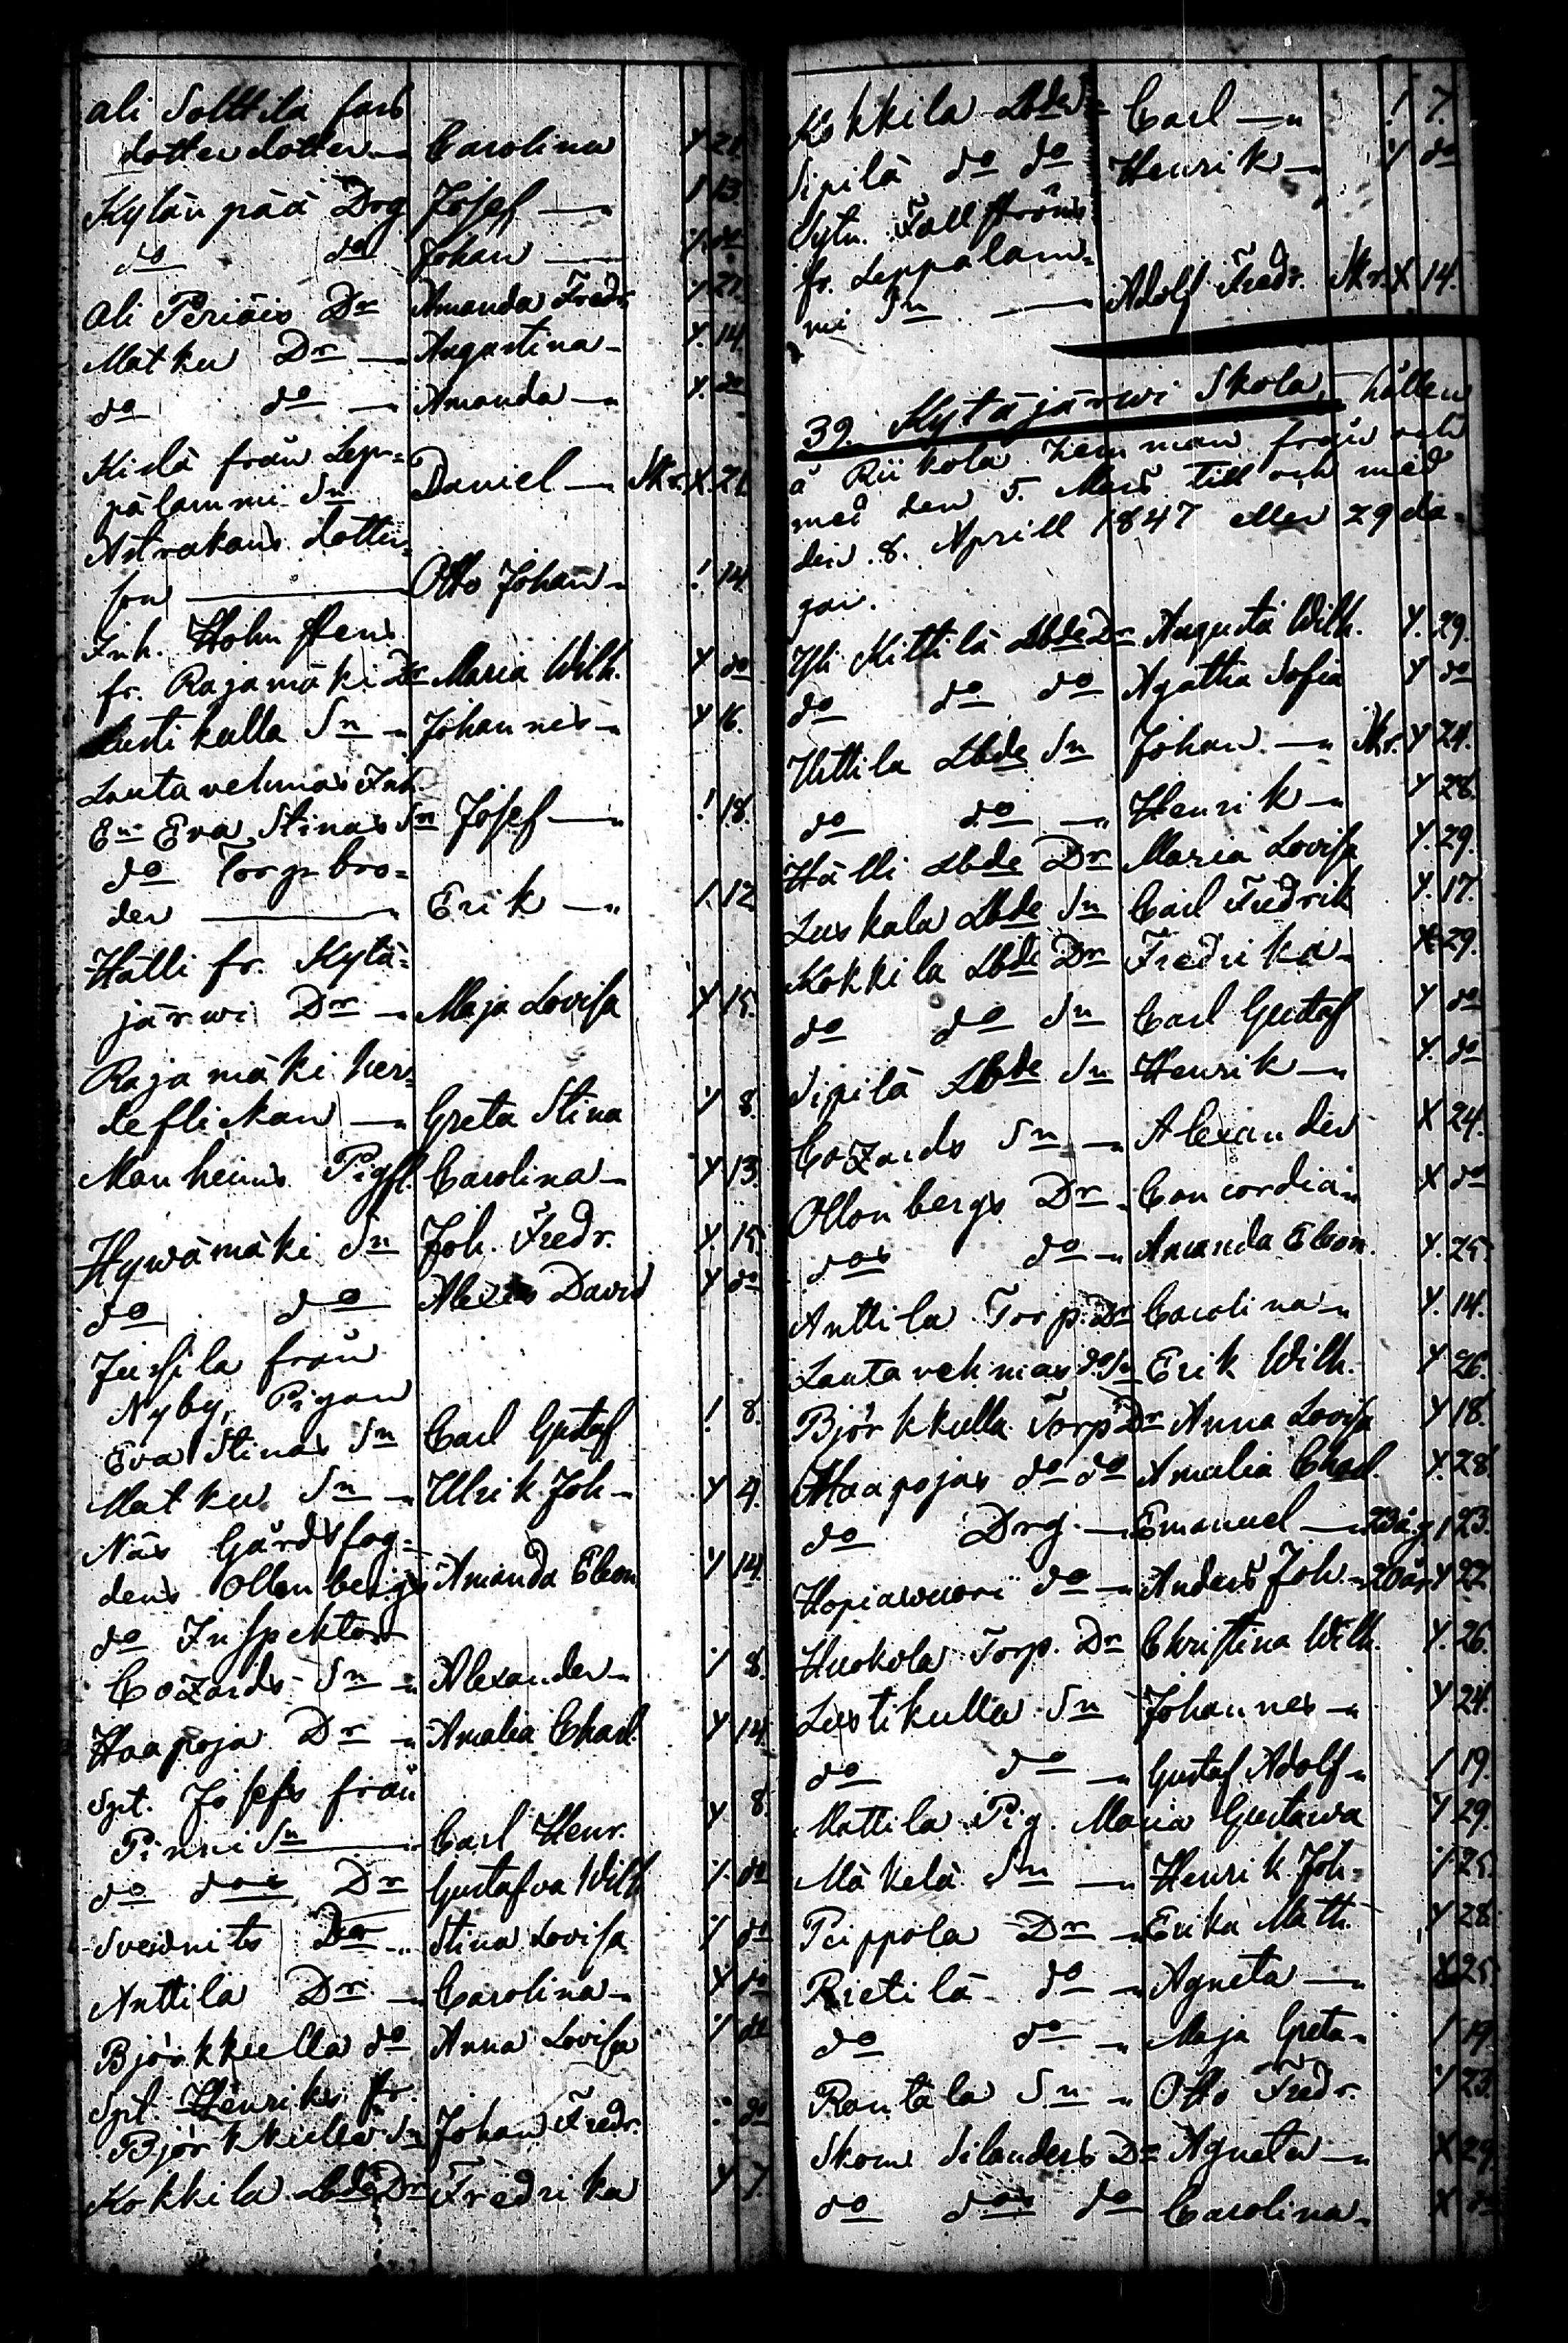 Ali Solttila fars
dotterdotter — Carolina Y 21.
Kylänpää Drg Josef — / 13.
do do Johan — Y. do
Ali Periäis Dr Amanda Fredr. Y 21.
Matku Dr — Augustina Y. 14.
do do — Amanda — Y. do
Kislä från Lep=
pälammi Sn Daniel — Skr. X. 21.
Astrakans dotter=
son — Otto Johan ! 14.
Inh. Holmstens
fr. Rajamäki Dr Maria Wilh. Y do
Lustikulla Sn Johannes Y 16.
Lautavehmas Inh.
En Eva Stinas Sn Josef — ! 18.
do Torp bro=
der — Erik — /. 12.
Hälli fr. Kytä=
järwi Dr — Maja Lovisa Y 15.
Rajamäki her=
deflickan — Greta Stina Y 8.
Manheims Pigfl. Carolina Y 13.
Hywämäki Sn Joh. Fredr. Y. 15.
do do Alexis David Y do
Jussila från
Nyby, Pigan
Eva Stinas Sn Carl Gustaf ! 8.
Matku Sn Ulrik Joh Y 4.
Näs Gårdsfog=
dens Ollonbergs Amanda Eleon Y 14.
do Inspektor
Cozards Sn Alexander Y 8.
Haapoja Dr Amalia Charl. Y 14.
Spt. Josefs från
Pinni Sn — Carl Henr. Y 8.
do dos Dr Gustafva Wilh Y. do
Svednits Dr Stina Lovisa Y do
Anttila Dr — Carolina Y do
Björkkulla do Anna Lovisa Y do
Spt. Henriks fr.
Björkkulla Sn Johan Fredr. do
Kokkila Lbde Dr Fredrika Y 7.
Kokkila Lbde Carl — ! 7.
Sipilä do do Henrik Y do
Sytn. Fallströms
fr. Leppälam=
mi Sn — Adolf Fredr. Skr. X 14.
39. Kytäjärwi Skola, hållen
å Riikola hemman från och
med den 5. Mars till och med
den 8. Aprill 1847 eller 29 da=
gar.
Yli Kittilä Lbde Dr Augusta Wilh. Y. 29.
do do do Agatha Sofia Y do
Uttila Lbde Sn Johan — Skr. Y 24.
do do — Henrik Y 28.
Hälli Lbde Dr Maria Lovisa Y. 29.
Luskala Lbde Sn Carl Fredrik Y. 17.
Kokkila Lbde Dr Fredrika X 29.
do do Sn Carl Gustaf Y do
Sipilä Lbde Sn Henrik Y. do
Cozards Sn Alexander X 24.
Ollonbergs Dr Concordia X do
dos do Amanda Eleon. Y. 25.
Anttila Torp. Dr Carolina Y. 14.
Lautavehmas do Sn Erik Wilh. Y 26.
Björkkulla Torp Dr Anna Lovisa Y 18.
Haapojas do do Amalia Charl. Y. 28.
do Drg. — Emanuel — 23 år / 23.
Hopiawuori do Anders Joh. 20 år Y 22.
Huokola Torp. Dr Christina Wilh. Y. 26.
Lustikulla Sn Johannes Y 24.
do do Gustaf Adolf / 19.
Mattila Pig. Maria Gustawa Y 29.
Mäkelä Sn Henrik Joh. Y 25.
Peippola Dr Erika Math. Y 28.
Rietilä do Agneta — X 25.
do do Maja Greta / 19.
Rantala Sn Otto Fredr. Y 23.
Skom. Silanders Dr Agneta X 29.
do dos do Carolina X do